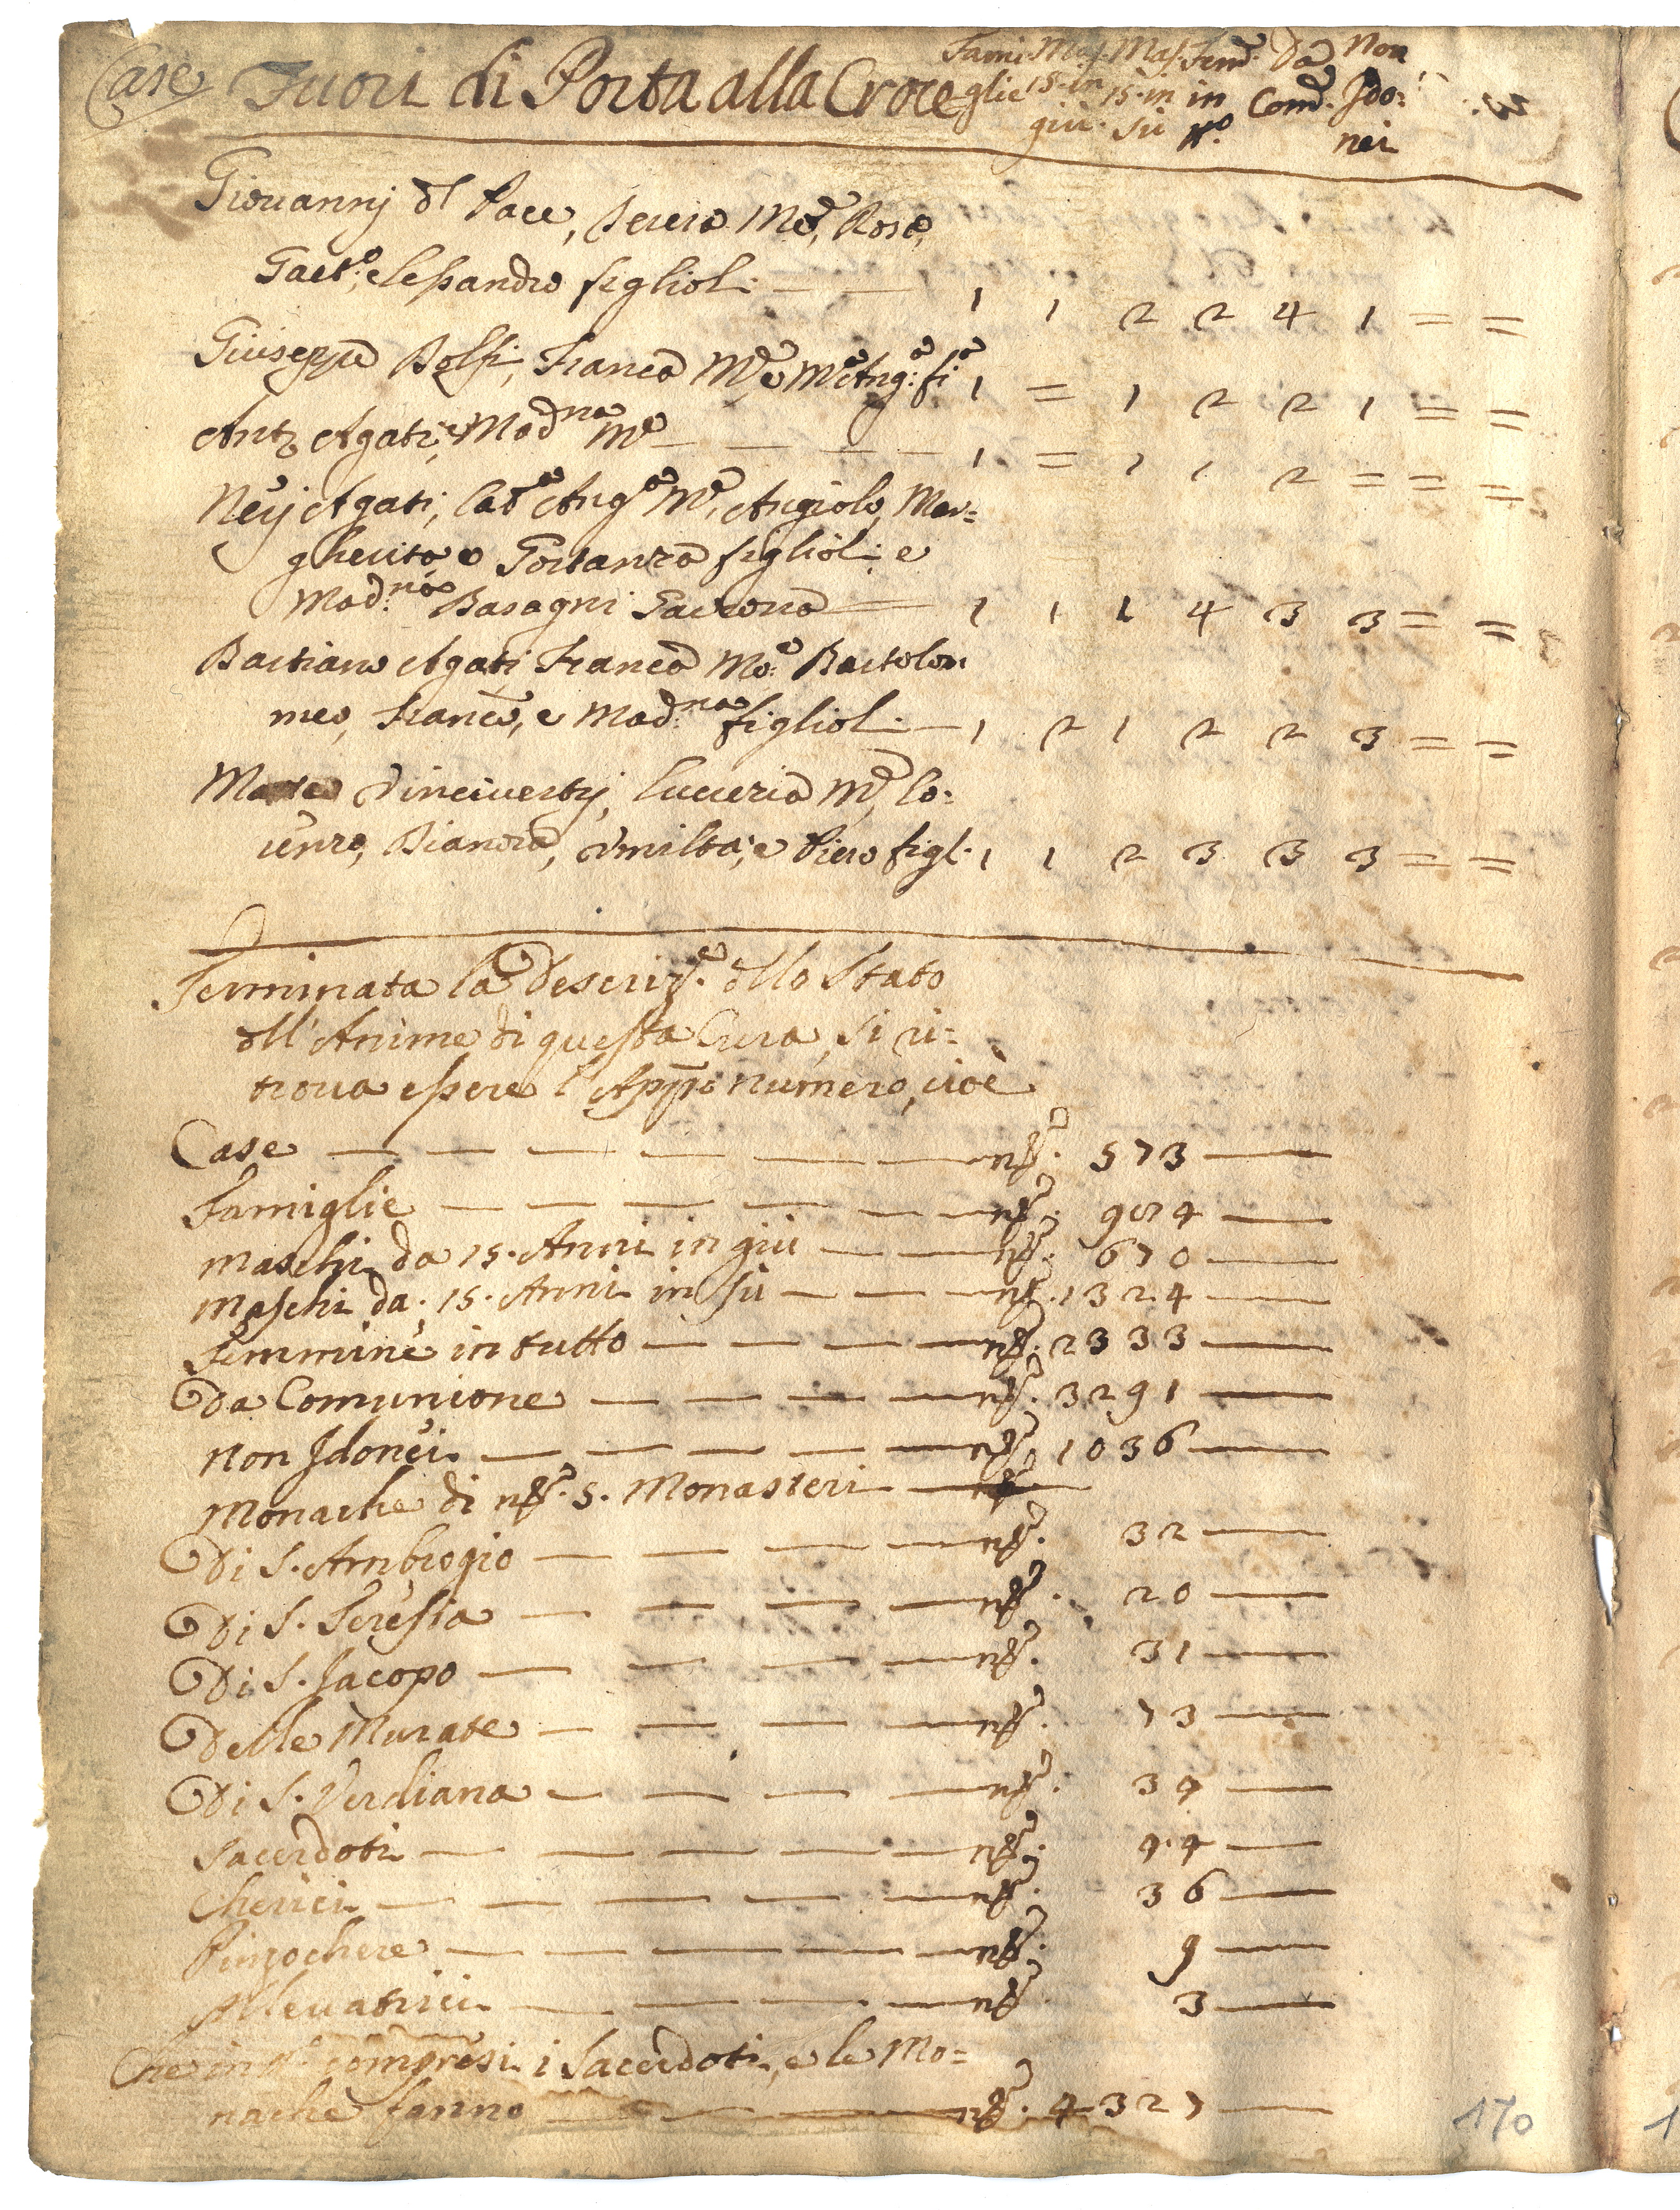 Case Fuori di Porta alla Croce Fami: Mas. Mas. Fem.e Da Non
glie 15. in 15. in in Com.e Ido:
giù. sù N.o nei
Giovannj dl Pace, M.e, Rosa,
Gaet.o, e Lessandro figlioli — — 1 1 2 2 4 1 = =
Giuseppe Franc.a M.e e M.a Ang.a fi.a 1 = 1 2 2 1 = =
Ant.o Agati, e Mad.na M.e — — — — 1 = 1 1 2 = = =
Nerj Agati, Cat.a Ang.a M.e, Angiolo, Mar=
gherita, e Gostanza figlioli e
Mad.na Basagni — 1 1 1 4 3 3 = =
Bastiano Agati Franc.a Mo.e Bartolom
meo, Franc.o, e Mad.na figlioli — 1 2 1 2 2 3 = =
Vincivertj, Lucrezia M.e, Lo:
renzo, Bianora, Umilta; e Piero figl. 1 1 2 3 3 3 = =
Terminata la Descriz.e dllo Stato
dll'Anime di questa Cura, si ri=
trova essere l'App.o numero, cioè
Case — — — — — — n.o 573 —
Famiglie — — — — — — n.o 924 —
Maschi da 15. Anni in giù — — n.o 670 —
Maschi da. 15. Anni in sù — — n.o 1324 —
Femmine in tutto — — — — n.o 2333 —
Da Comunione — — — — n.o 3291 —
Non Idonei — — — — — n.o 1036 —
Monache di n.o 5. Monasteri —
Di S. Ambrogio — — — — n.o 32 —
Di S. Teresia — — — — n.o 20 —
Di S. Jacopo — — — — n.o 31 —
Delle Murate — — — — n.o 73 —
Di S. Verdiana — — — — n.o 34 —
Sacerdoti — — — — — n.o 44 —
Cherici — — — — — n.o 36 —
Pinzochere — — — — — n.o 9 —
Allevatrici — — — — n.o 3 —
Che in N.o compresi i Sacerdoti, e le Mo=
nache fanno — — — — n.o 4327 —
170